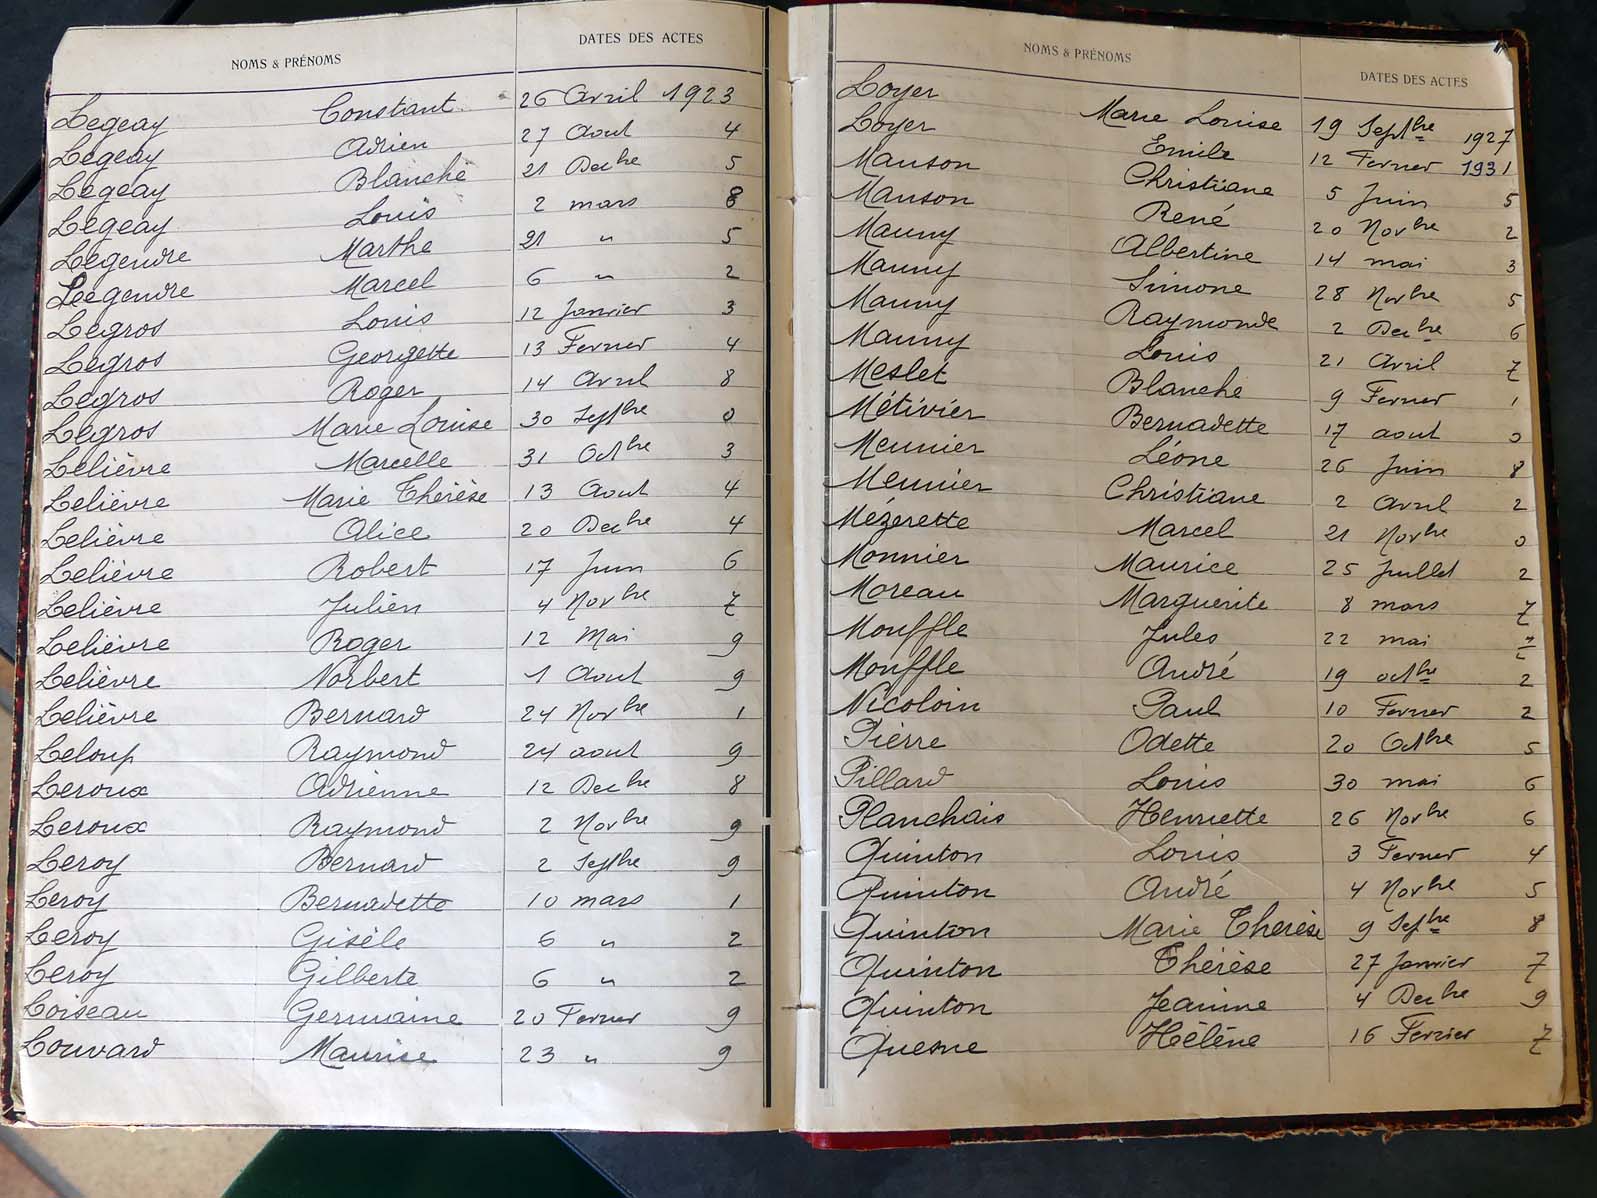 NOMS & PRÉNOMS DATES DES ACTES
Legeay Constant 26 Avril 1923
Legeay Adrien 27 Aout 4
Legeay Blanche 21 Decbre 5
Legeay Louis 2 mars 8
Legendre Marthe 21 " 5
Leegendre Marcel 6 " 2
Legros Louis 12 Janvier 3
Legros Georgette 13 Fevrier 4
Legros Roger 14 Avril 8
Legros Marie Louise 30 Septbre 0
Lelièvre Marcelle 31 Octbre 3
Lelièvre Marie Thérèse 13 Aout 4
Lelièvre Alice 20 Decbre 4
Lelièvre Robert 17 Juin 6
Lelièvre Julien 4 Novbre 7
Lelièvre Roger 12 Mai 9
Lelièvre Norbert 1 Aout 9
Lelièvre Bernard 24 Novbre 1
Leloup Raymond 24 aout 9
Leroux Adrienne 12 Decbre 8
Leroux Raymond 2 Novbre 9
Leroy Bernard 2 Septbre 9
Leroy Bernadette 10 mars 1
Leroy Gisèle 6 " 2
Leroy Gilberte 6 " 2
Loiseau Germaine 20 Fevrier 9
Louvard Maurise 23 " 9
NOMS & PRÉNOMS DATES DES ACTES
Loyer Marie Louise 19 Septbre 1927
Loyer Emile 12 Fevrier 1931
Manson Christiane 5 Juin 5
Manson René 20 Novbre 2
Mauny Albertine 14 mai 3
Mauny Simone 28 Novbre 5
Mauny Raymonde 2 Decbre 6
Mauny Louis 21 Avril 7
Meslet Blanche 9 Fevrier 1
Métivier Bernadette 17 aout 0
Meunier Léone 26 Juin 8
Meunier Christiane 2 Avril 2
Mézerette Marcel 21 Novbre 0
Monnier Maurice 25 Juillet 2
Moreau Marguerite 8 mars 7
Mouffle Jules 22 mai
Mouffle André 19 octbre 2
Nicoloin Paul 10 Fevrier 2
Pierre Odette 20 Octbre 5
Pillard Louis 30 mai 6
Planchais Henriette 26 Novbre 6
Quinton Louis 3 Fevrier 4
Quinton André 4 Novbre 5
Quinton Marie Therèse 9 Sepbre 8
Quinton Thérèse 27 Janvier 7
Quinton Jeanine 4 Decbre 9
Quesne Hélène 16 Fevrier 7